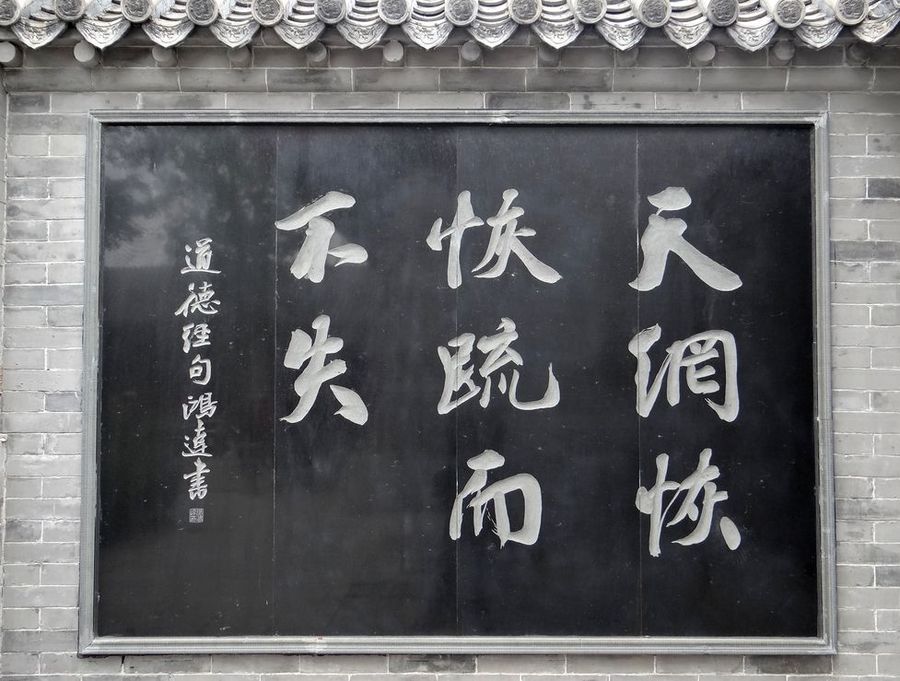 天網恢
恢疏而
不失
道德經句鴻達書